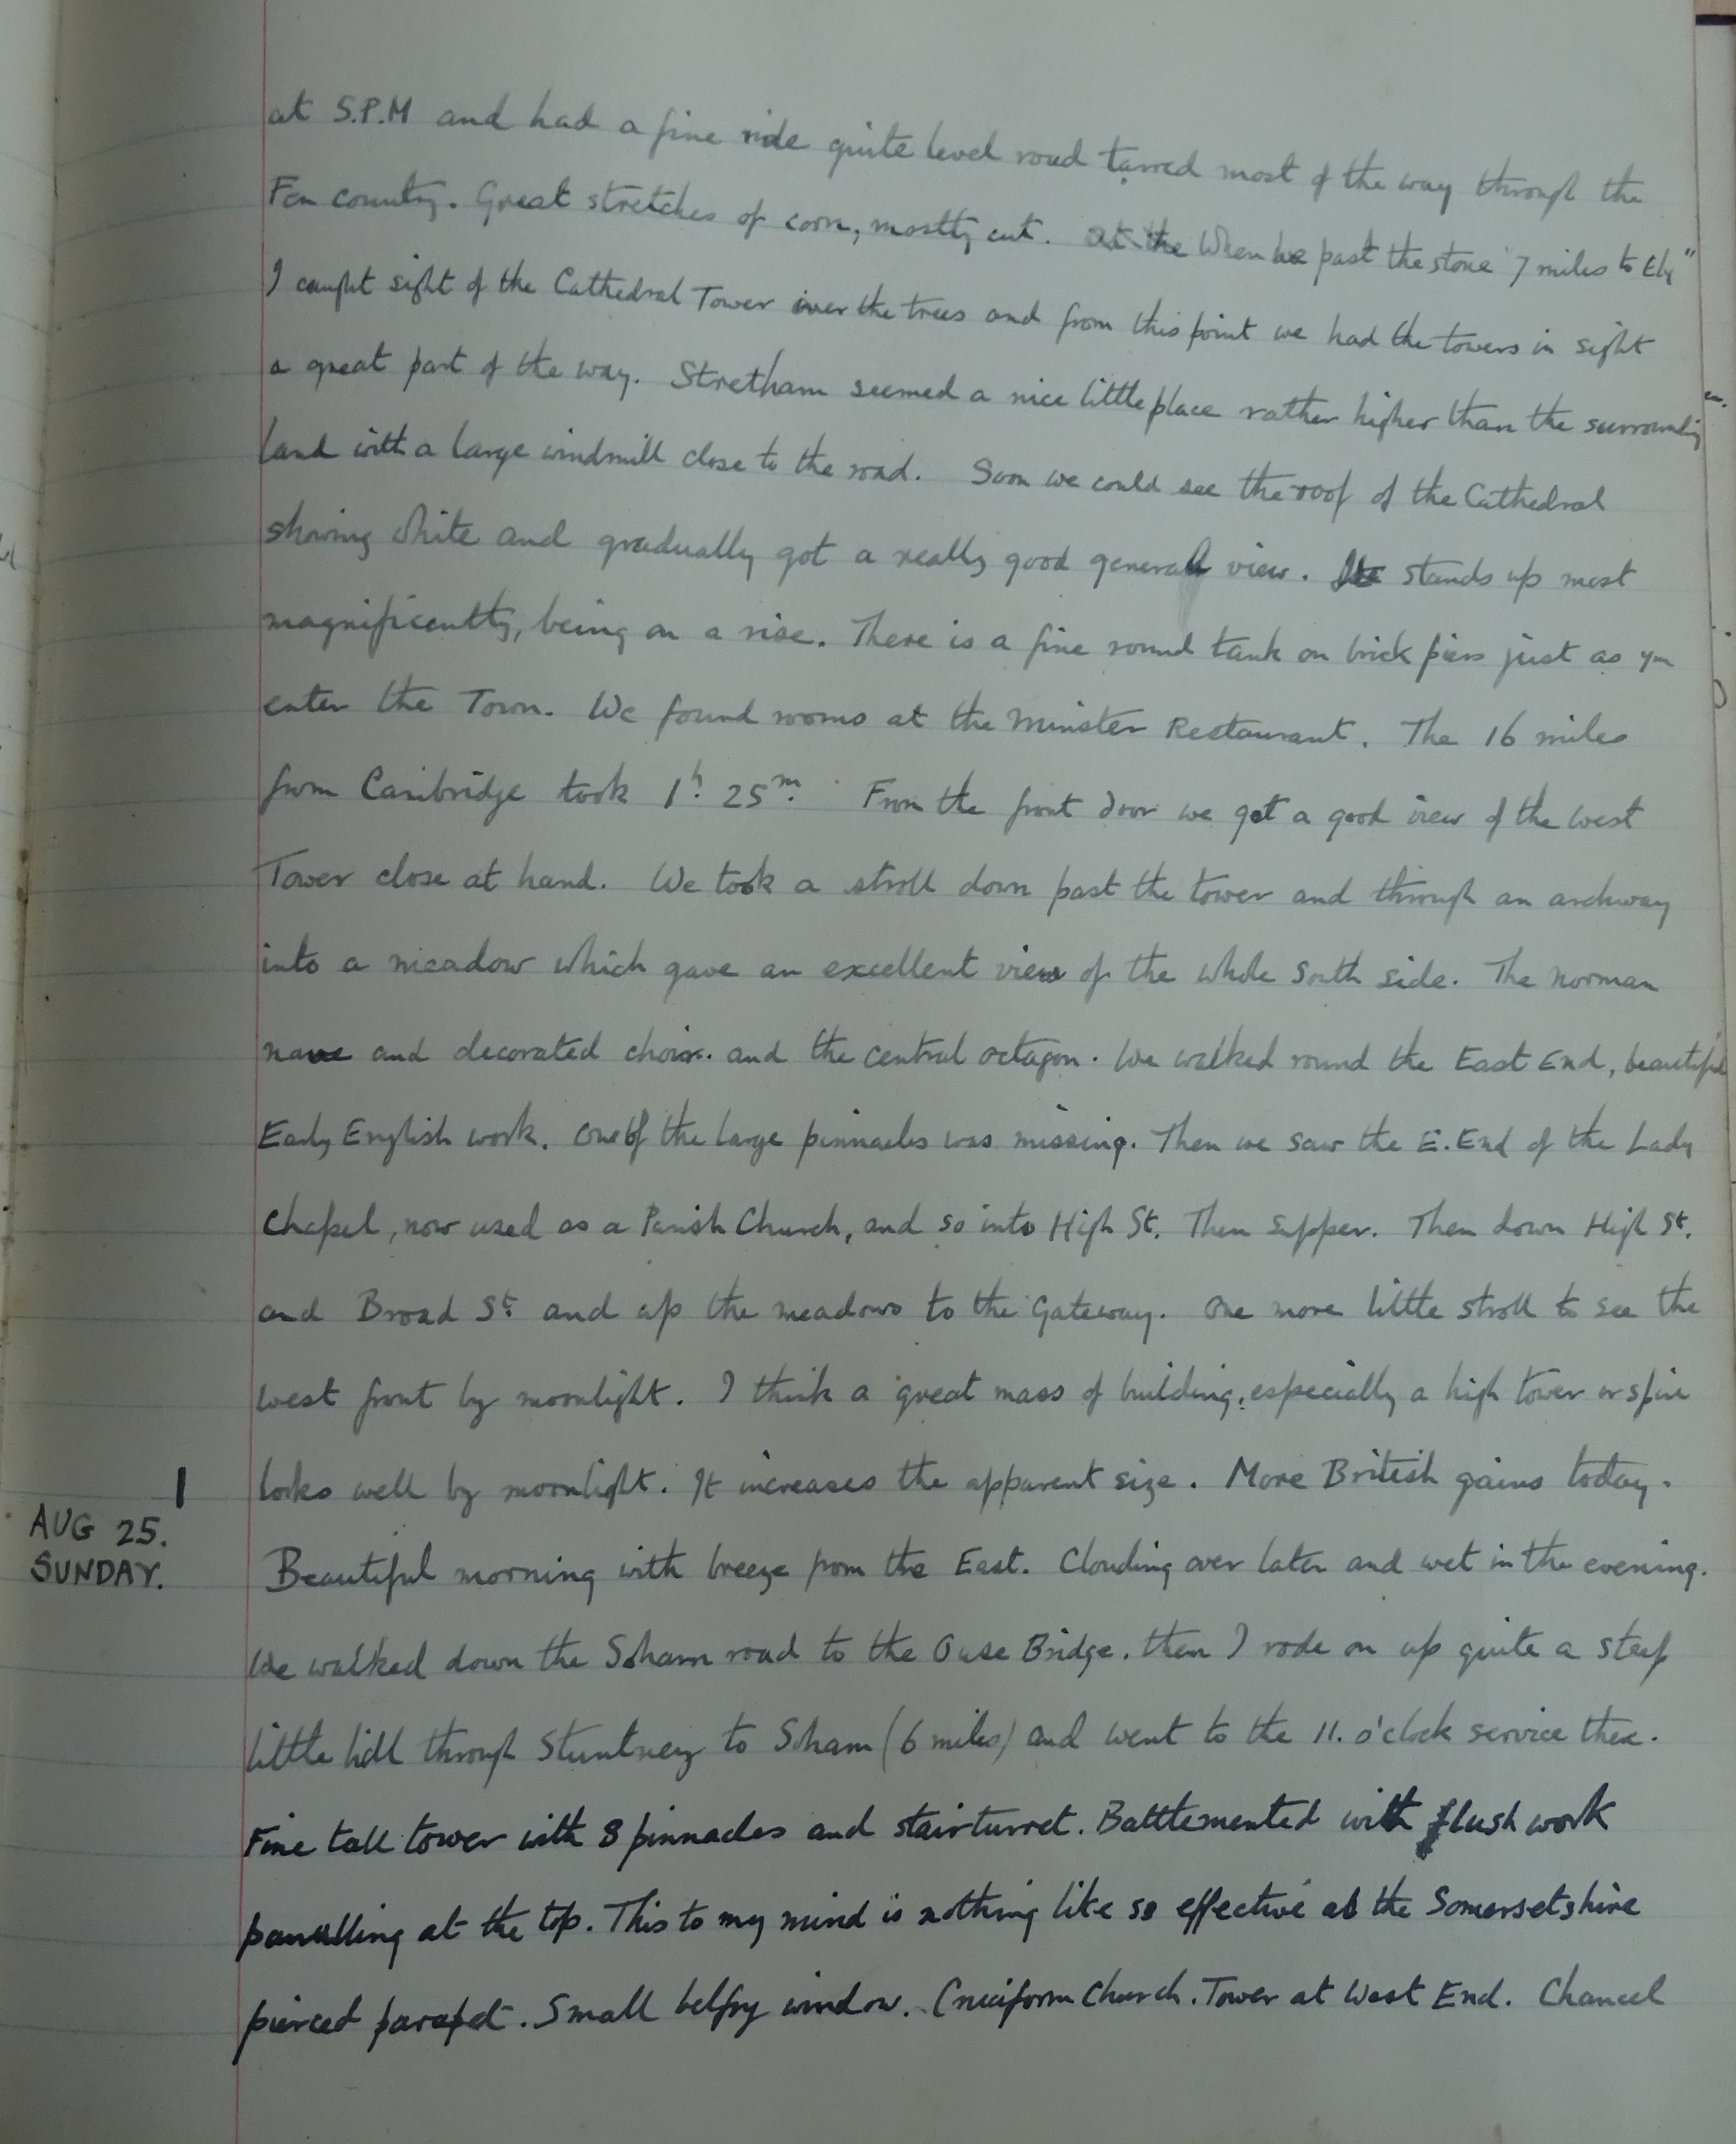 at 5.P.M and had a fine ride quite level road tarred most of the way through the
Fen country. Great stretches of corn, mostly cut. At the When we past the stone "7 miles to Ely"
I caught sight of the Cathedral Tower over the trees and from this point we had the towers in sight
a great part of the way. Stretham seemed a nice little place rather higher than the surrounding
land with a large windmill close to the road. Soon we could see the roof of the Cathedral
showing white and gradually got a really good general view. It stands up most
magnificently, being on a rise. There is a fine round tank on brick piers just as you
enter the Town. We found rooms at the Minster Restaurant. The 16 miles
from Cambridge took 1h. 25m. From the front door we got a good view of the west
Tower close at hand. We took a stroll down past the tower and through an archway
into a meadow which gave an excellent view of the whole South side. The norman
nave and decorated choir. and the central octagon. We walked round the East End, beautiful
Early English work. One of the large pinnacles was missing. Then we saw the E. End of the Lady
Chapel, now used as a Parish Church, and so into High St. Then Supper. Then down High St.
and Broad St. and up the meadows to the Gateway. One more little stroll to see the
west front by moonlight. I think a great mass of building, especially a high tower or spire
looks well by moonlight. It increases the apparent size. More British gains today.
AUG 25.
SUNDAY.
Beautiful morning with breeze from the East. Clouding over later and wet in the evening.
We walked down the Soham road to the Ouse Bridge. then I rode on up quite a steep
little hill through Stuntney to Soham (6 miles) and went to the 11. o'clock service there.
Fine tall tower with 8 pinnacles and stairturret. Battlemented with flush work
panelling at the top. This to my mind is nothing like so effective as the Somersetshire
pierced parapet. Small belfry window. Cruciform Church. Tower at West End. Chancel